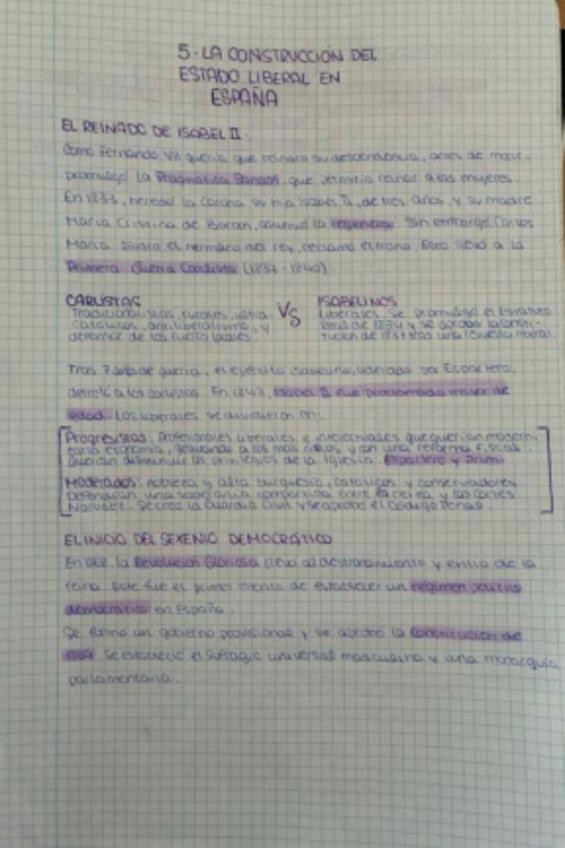 5.-LA CONSTRUCCION DEL
ESTADO LIBERAL EN
ESPAÑA
EL REINADO DE ISABEL II.
Como Fernando VII quería que reinara su descendencia, antes de morir,
promulgó la Pragmática Sanción, que permitía reinar a las mujeres.
En 1833, heredó la corona su hija Isabel II, de tres años, y su madre
María Cristina de Borbón, asumió la regencia. Sin embargo, Carlos
María Isidro, el hermano del rey, reclamó el trono. Esto llevó a la
Primera Guerra Carlista (1833-1840)
CARLISTAS
Tradicionalistas, rurales,
católicos, antiliberalismo, y
defensor de los fueros locales.
VS
ISABELINOS
Liberales. Se promulgó el Estatuto
Real de 1834 y se aprobó la Consti-
tución de 1837 tras una revuelta liberal.
Tras 7 años de guerra, el ejército isabelino, liderado por Espartero,
derrotó a los carlistas. En 1843, Isabel II fue proclamada mayor de
edad. Los liberales se dividieron en:
Progresistas: Profesionales liberales e intelectuales que querían moderni-
zar la economía, a los más ricos y con una reforma fiscal.
Querían disminuir los privilegios de la Iglesia. Espartero y Prim
Moderados: nobleza y alta burguesía, católicos y conservadores
Defendían una soberanía compartida entre la reina y las cortes.
Narváez. Se crea la Guardia Civil y se aprobó el Código Penal.
EL INICIO DEL SEXENIO DEMOCRÁTICO
En 1868, la Revolución Gloriosa llevó al destronamiento y exilio de la
reina. Este fue el primer intento de establecer un régimen político
democrático en España.
Se formó un gobierno provisional y se aprobó la Constitución de
1869. Se estableció el sufragio universal masculino y una monarquía
parlamentaria.